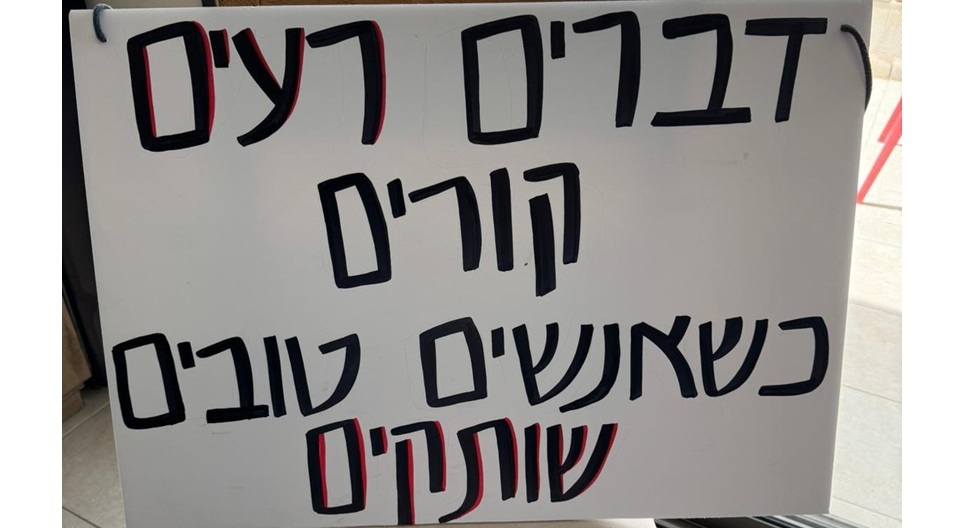 דברים רעים
קורים
כשאנשים טובים
שותקים